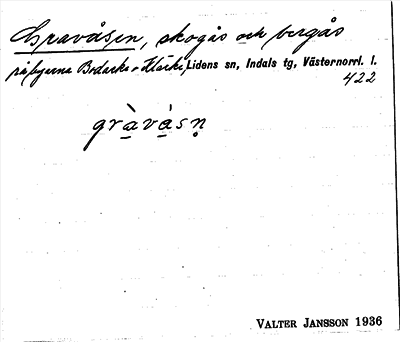 Gravåsen, skogås och bergås
på byarna Bodacke o Kläcke, Lidens sn, Indals tg, Västernorrl. l.
422
gràvásn̥
VALTER JANSSON 1936